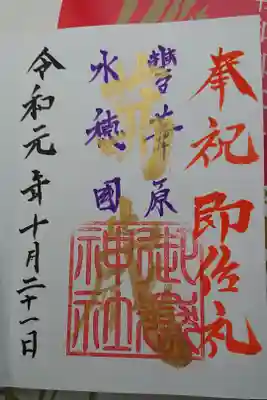 奉祝 即位礼
豐葦原
水穂國
御嶽
神社
令和元年十月二十一日